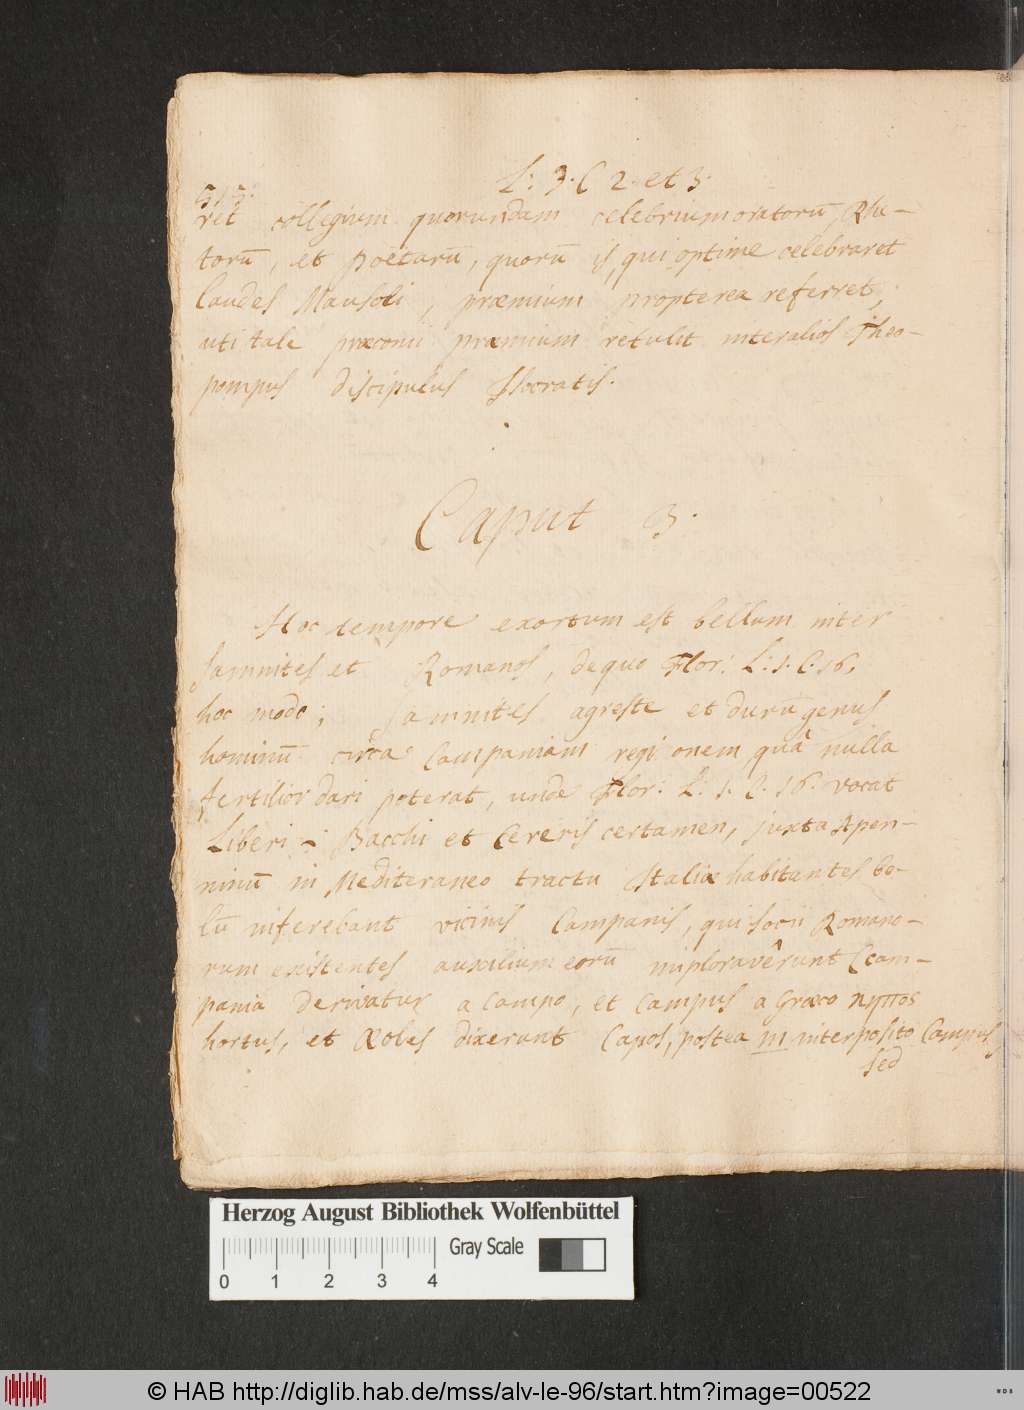 L: 3. C 2. et 3.
515.
ret collegium quorundam celebrium oratorū, Rhe-
torū, et poëtarū, quorū is, qui optime celebraret
laudes Mausoli, præmium propterea referret,
uti tale præconii præmium retulit inter alios Theo-
pompus discipulus Isocratis.
Caput 3.
Hoc tempore exortum est bellum inter
Samnites et Romanos, de quo Flor: L: 1. C. 16.
hoc modo; Samnites agreste et durū genus
hominū circa Campaniam regionem quâ nulla
fertilior dari poterat, unde Flor: L: 1. C. 16. vocat
Liberi Bacchi et Cereris certamen, juxta Apen-
ninū in Mediteraneo tractu Italiæ habitantes be-
lū inferebant vicinis Campanis, qui socii Romano-
rum existentes auxilium eorū imploravêrunt (cam-
pania derivatur a campo, et campus a Græco κηπος
hortus, et Æoles dixerunt Capos, postea m interposito Campus,
sed
Herzog August Bibliothek Wolfenbüttel
Gray Scale
0 1 2 3 4
© HAB http://diglib.hab.de/mss/alv-le-96/start.htm?image=00522